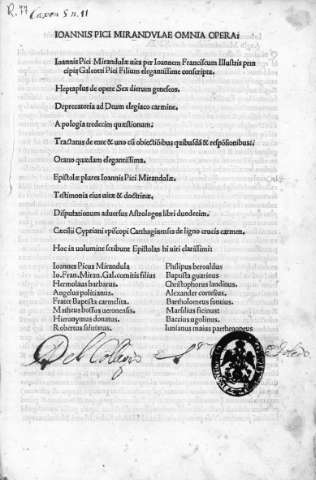 R. 77 Caxon 5 n. 11
IOANNIS PICI MIRANDVLAE OMNIA OPERA:
Ioannis Pici Mirandulæ uita per Ioannem Franciscum Illustris prin
cipis Galeotti Pici Filium elegantissime conscripta.
Heptaplus de opere Sex dierum geneseos.
Deprecatoria ad Deum elegiaco carmine.
Apologia tredecim quæstionum.
Tractatus de ente & uno cū obiectiōibus quibusdā & respōsionibus:
Oratio quædam elegantissima.
Epistolæ plures Ioannis Pici Mirandulæ.
Testimonia eius uitæ & doctrinæ.
Disputationum aduersus Astrologos libri duodecim.
Cæcilii Cypriani episcopi Carthaginensis de ligno crucis carmen.
Hoc in uolumine scribunt Epistolas hi uiri clarissimi:
Ioannes Picus Mirandula
Io. Fran. Miran. Gal. comitis filius
Hermolaus barbarus.
Angelus politianus.
Frater Baptista carmelita.
Matthæus bossus ueronensis.
Hieronymus donatus.
Robertus saluiatus.
Philippus beroaldus
Baptista guarinus
Christophorus landinus.
Alexander cortesius.
Bartholomeus fontius.
Marsilius ficinus:
Baccius ugolinus.
Iunianus maius parthenopeus
Del Collegio